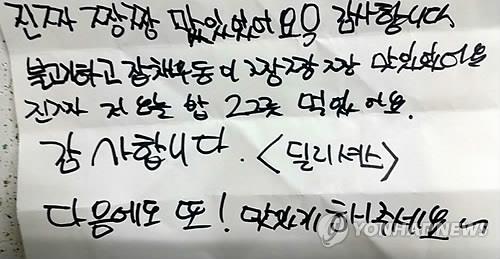 진짜 짱짱 맛있었어요 감사합니다.
불고기하고 잡채우동이 짱짱짱 맛있었어요
진짜 저 오늘 밥 2그릇 먹었어요.
감사합니다. <딜리셔스>
다음에도 또! 맛있게 해주세요~
YONHAP NEWS